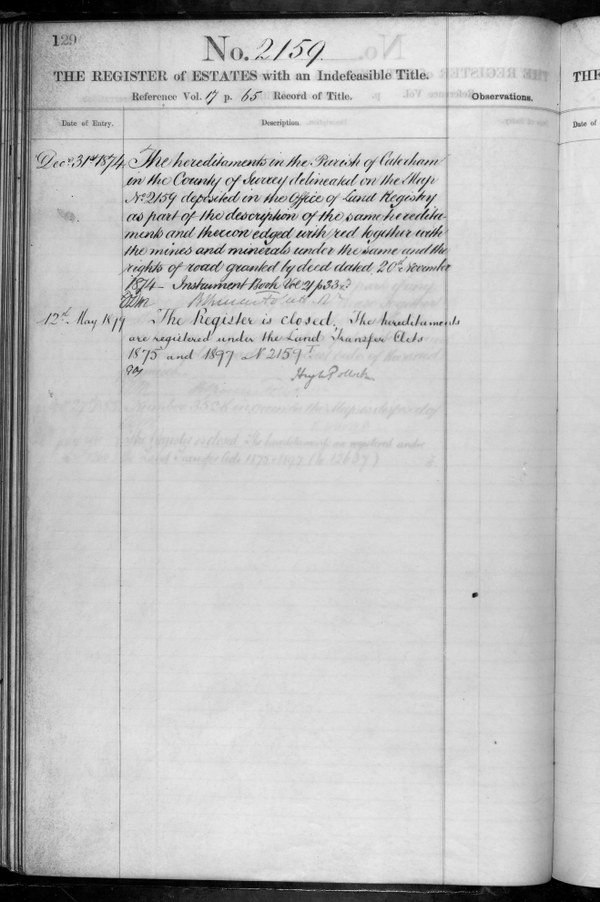 129
No. 2159
THE REGISTER of ESTATES with an Indefeasible Title.
Reference Vol. 17 p. 65 Record of Title.
Observations.
Date of Entry.
Description.
Decr. 31st 1874
The hereditaments in the Parish of Caterham
in the County of Surrey delineated on the Map
No. 2159 deposited in the Office of Land Registry
as part of the description of the same heredita-
ments and thereon edged with red together with
the mines and minerals under the same and the
rights of road granted by deed dated 20th November
1874 - Instrument Book Vol 21 p 332
12th May 1899
The Register is closed. The hereditaments
are registered under the Land Transfer Acts
1875 and 1897 No 2159
Hugh Pollock
THE
Date of